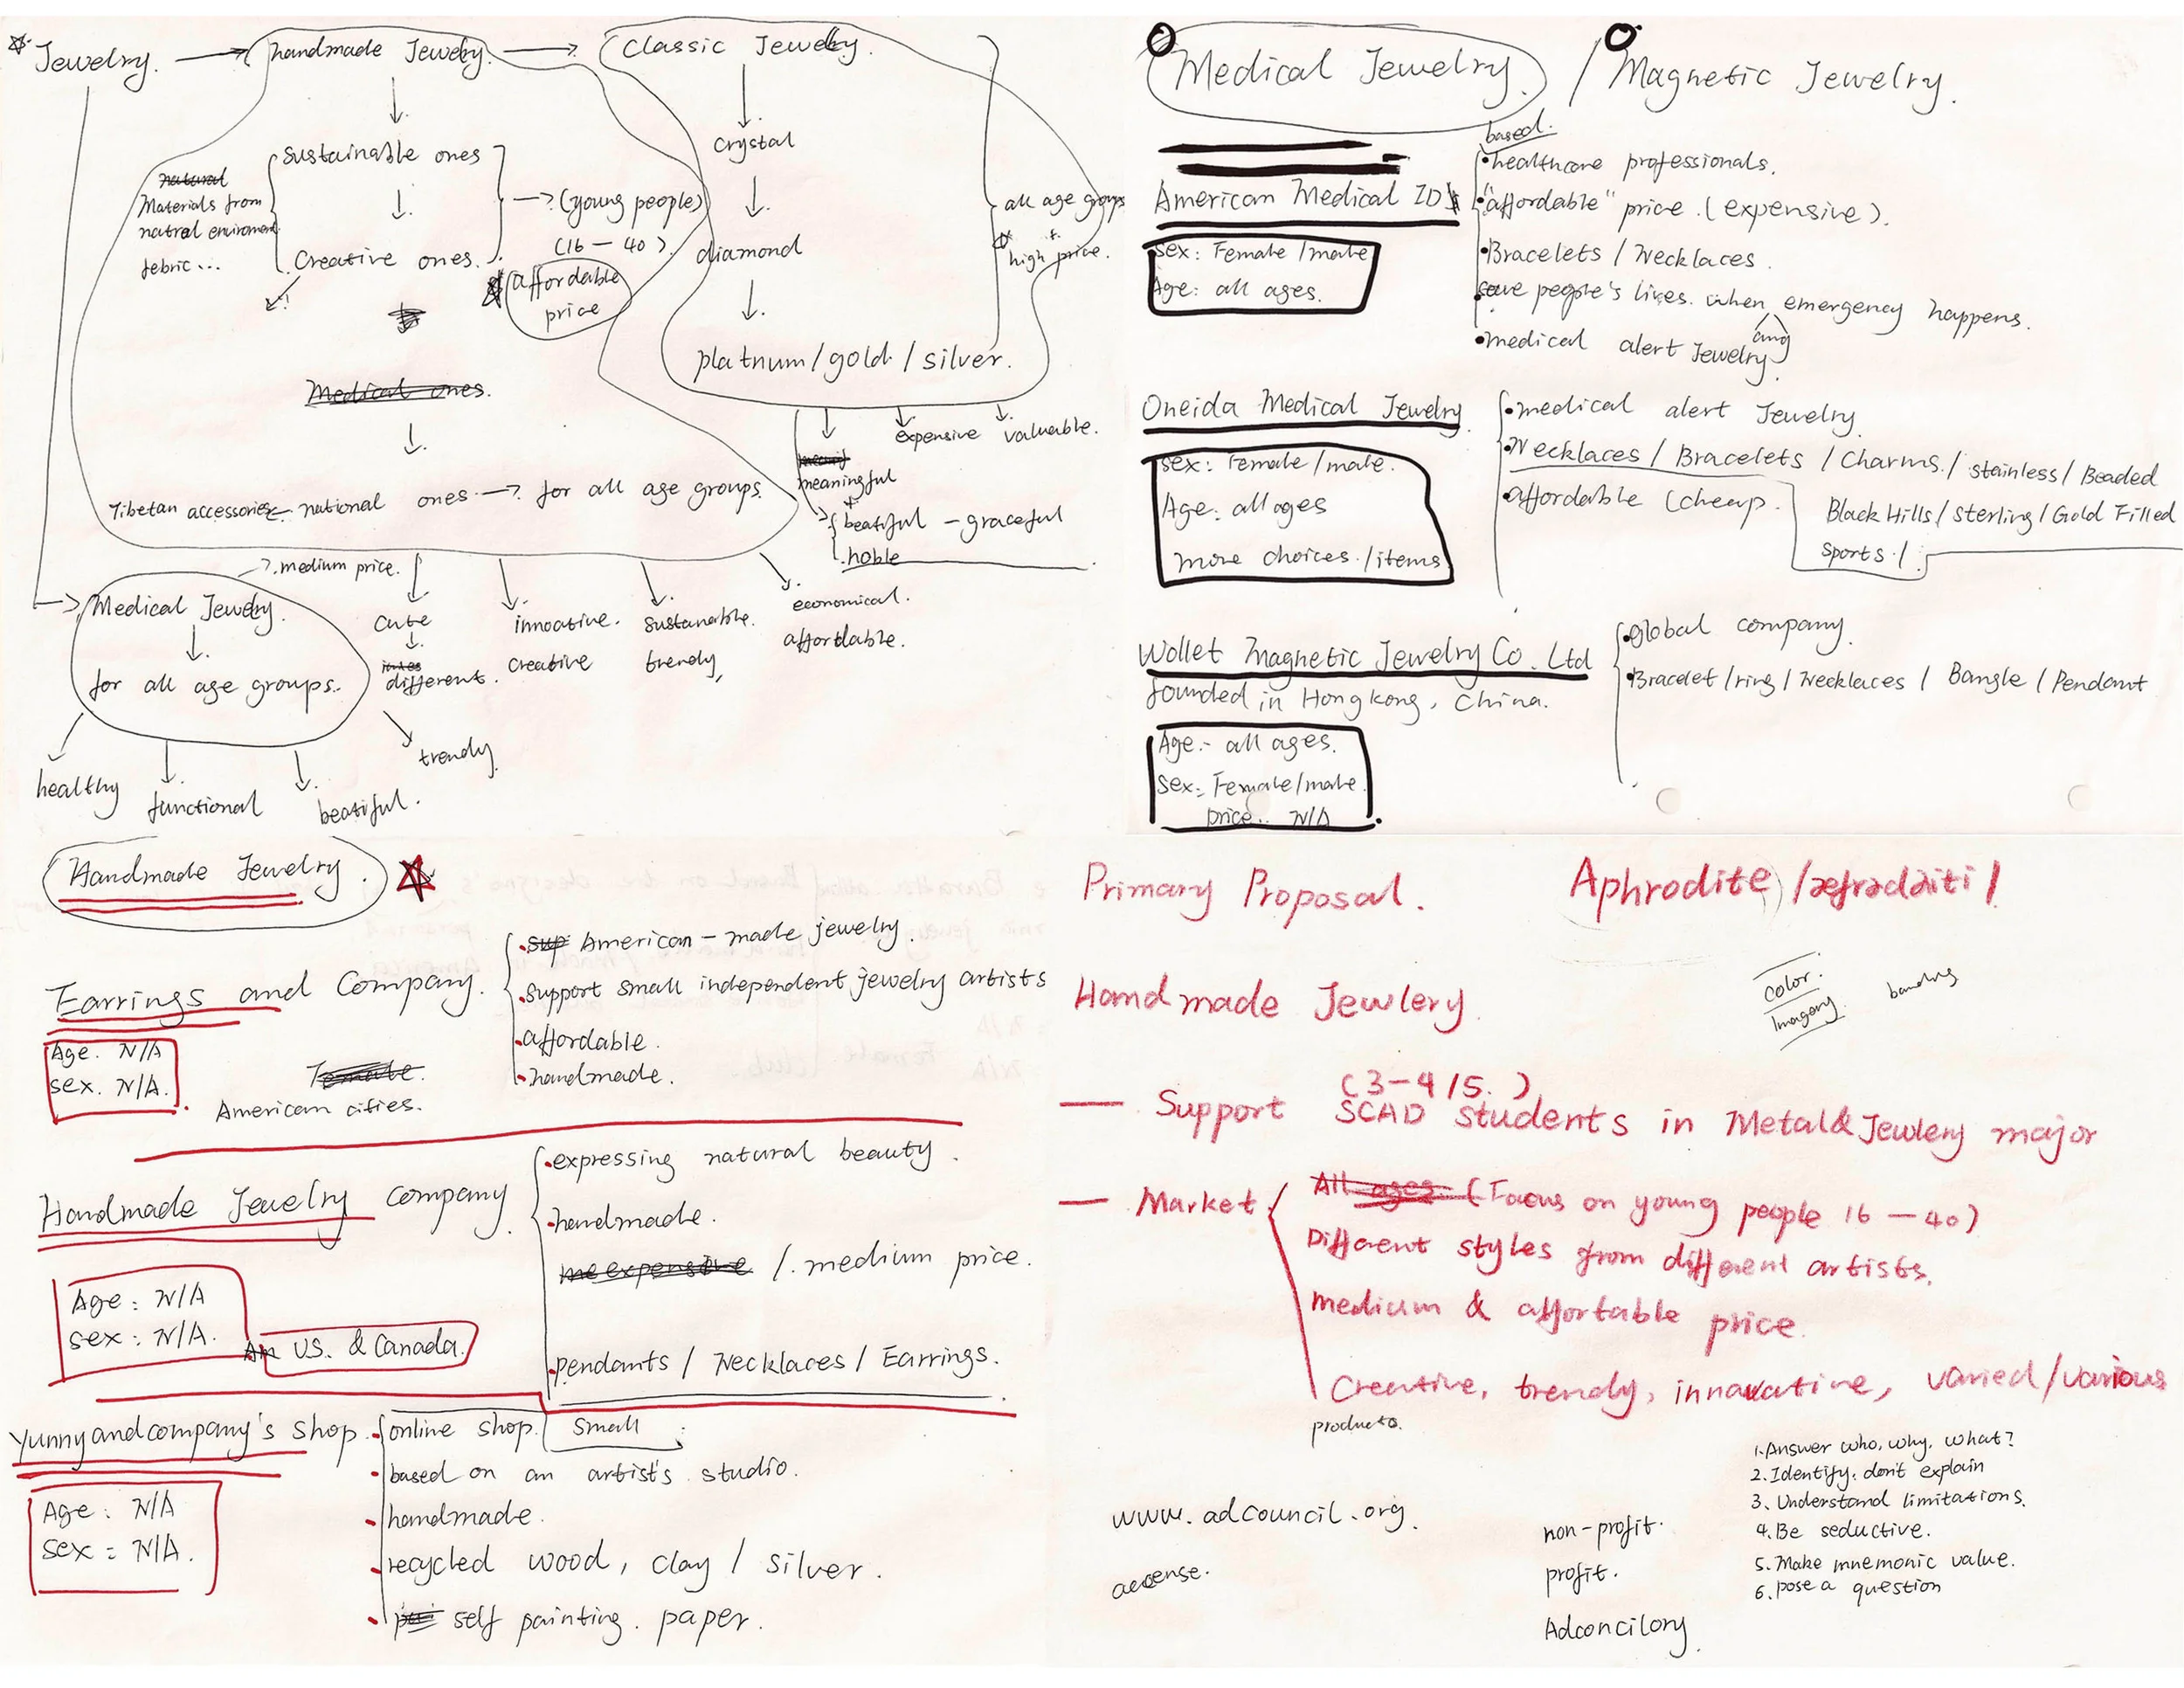 Jewelry.
handmade Jewelry.
Classic Jewelry.
Sustainable ones
Materials from
natral enviroment
febric...
Creative ones.
(young people)
(16 — 40)
affordable
price
Medical ones.
Tibetan accessories
national ones
for all age groups.
crystal
diamond
platnum/gold/silver.
all age groups
+
high price.
meaningful
+
expensive
valuable.
beatiful - graceful
noble
Medical Jewelry.
for all age groups.
medium price.
healthy
functional
beatiful.
trendy
cute
different.
innoative.
creative
sustanable.
trendy,
economical.
affordable.
Medical Jewelry. / Magnetic Jewelry.
American Medical ID
Sex: Female/male
Age: all ages.
based.
•healthcare professionals.
•"affordable" price. (expensive).
•Bracelets / Necklaces.
save people's lives. when emergency happens.
•medical alert Jewelry
Oneida Medical Jewelry
Sex: Female/male.
Age: all ages
more choices./items
•medical alert Jewelry.
•Necklaces / Bracelets / Charms / stainless / Beaded
Black Hills / Sterling / Gold Filled
sports. /
•affordable (cheap.
Wollet Magnetic Jewelry Co. Ltd
founded in Hongkong, China.
Age:- all ages.
Sex: Female/male.
price.. N/A
•global company.
•Bracelet / ring / Necklaces / Bangle / Pendant
Handmade Jewelry.
Earrings and Company.
Age. N/A
sex. N/A.
American cities.
•sup American-made jewelry.
•support small independent jewelry artists
•affordable.
•handmade.
Handmade Jewelry Company.
Age: N/A
sex: N/A.
US. & Canada.
•expressing natural beauty.
•handmade.
me expensive /. medium price.
•pendants / Necklaces / Earrings.
Yunnyandcompany's shop.
Age: N/A
sex = N/A.
•online shop. Small
•based on an artist's studio.
•handmade.
•recycled wood, clay / silver.
•self painting. paper.
Primary Proposal.
Aphrodite
Handmade Jewlery.
color.
Imagery.
— Support SCAD students in Metal&Jewlery major
(3-4/5.)
— Market
All ages. (Focus on young people 16 — 40)
Different styles from different artists.
medium & affortable price.
Creative, trendy, innovative, varied/various
products.
www.adcouncil.org.
non-profit.
profit.
Adconcilory.
1.Answer who, why, what?
2.Identify, don't explain
3. Understand limitations.
4.Be seductive.
5.Make mnemonic value.
6.pose a question